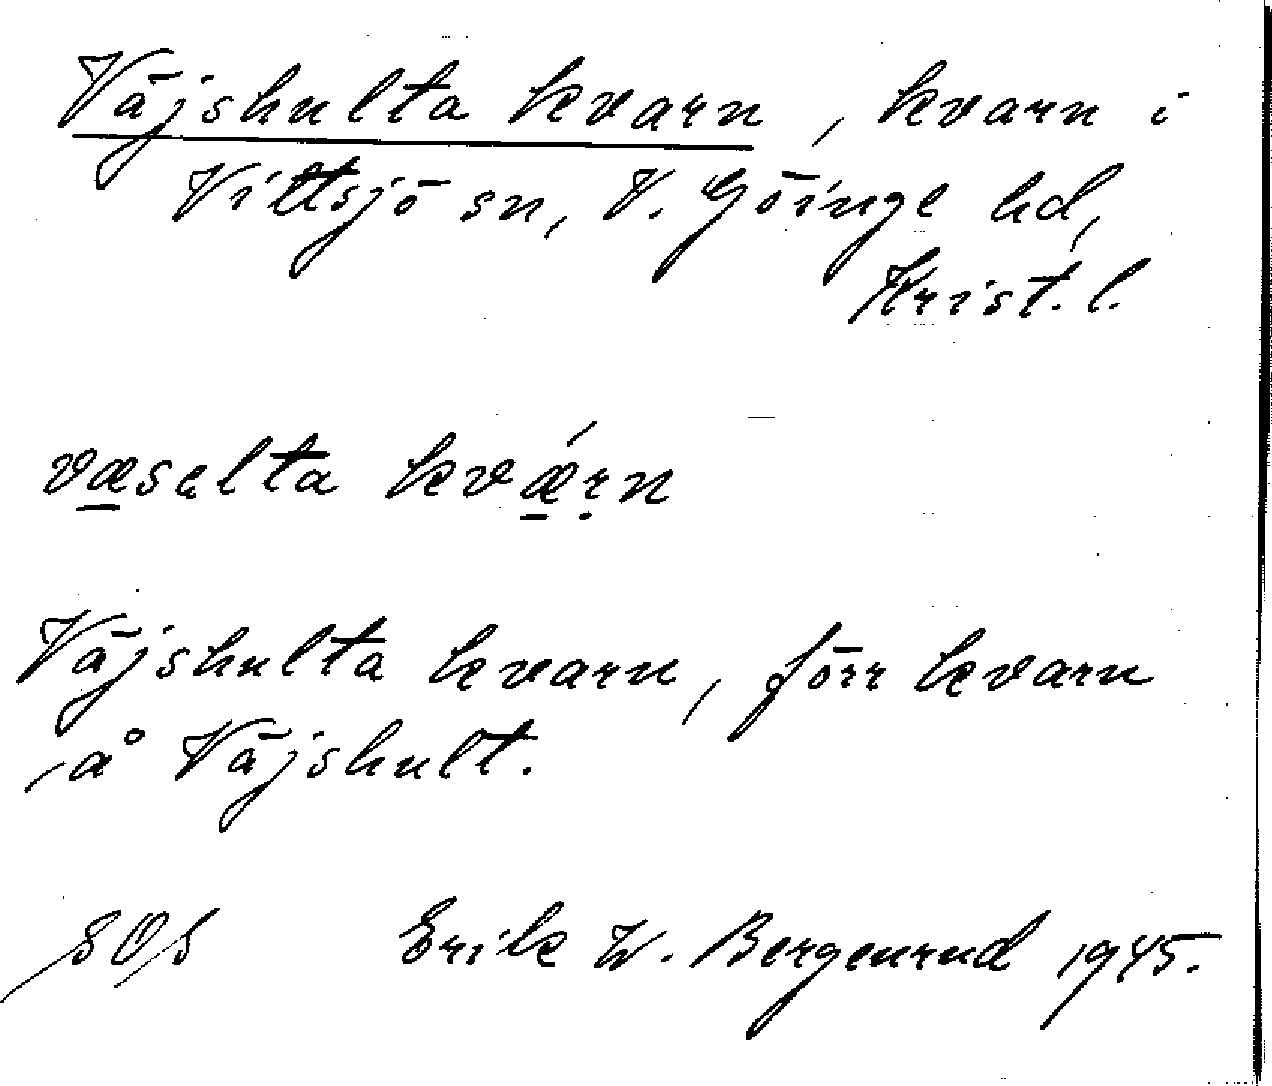 Väjshulta kvarn, kvarn i
Vittsjö sn, V. Göinge hd,
Krist. l.
væsalta kvǽrn
Väjshulta kvarn, förr kvarn
å Väjshult.
Erik W. Bergenrud 1945.